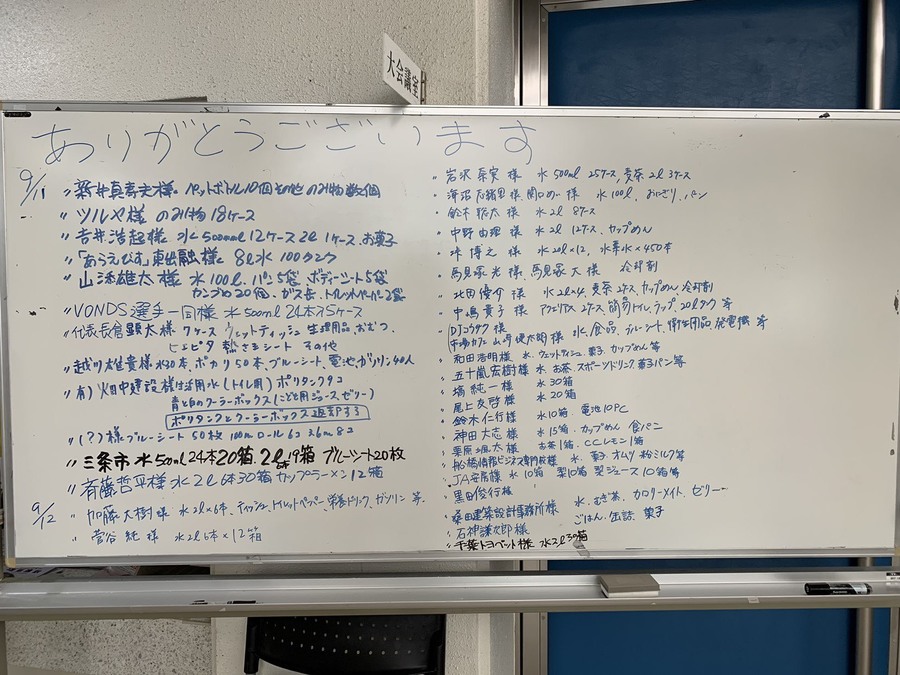 大会議室
ありがとうございます
9/11
〃 新井真寿夫様 ペットボトル10個その他 のみ物数個
〃 ツルヤ様 のみ物 18ケース
〃 吉井浩超様 水500ml12ケース 2l 1ケース、お菓子
〃「あらえびす」東出融様 8l水 100タンク
〃 山添雄太様 水100l、パン5袋、ボディーシート5袋
カンヅメ20個、ガス缶、トイレットペーパー2袋
〃 VONDS選手一同様 水500ml 24本入5ケース
〃 代表長倉顕太様 7ケース ウェットティッシュ 生理用品、おむつ、
ヒエピタ 熱さまシート その他
〃 越川雄貴様 水30本、ポカリ50本、ブルーシート、電池、ガソリン40人
〃 有)畑中建設様 生活用水(トイレ用) ポリタンク9コ
青と白のクーラーボックス(こども用ジュース、ゼリー)
ポリタンクとクーラーボックス返却する
〃 (?)様 ブルーシート 50枚 100mロール6コ 8コ
〃 三条市 水500ml24本20箱 2l 19箱 ブルーシート20枚
〃 斉藤哲平様 水2l6本30箱 カップラーメン12箱
9/12
〃 加藤大樹様 水2l×6本、ティッシュ、トイレットペーパー、栄養ドリンク、ガソリン 等
〃 菅谷 純 様 水2l6本×12箱
〃 岩沢 奈実 様 水500ml 25ケース、麦茶2l3ケース
〃 様 関口 様 水100l、おにぎり、パン
〃 鈴木 様 水2l 8ケース
〃 中野由理 様 水2l 12ケース、カップめん
〃 博之 様 水20l×12、水 ×450本
〃 馬見塚 様 馬見塚 様 冷却剤
〃 北田優介 様 水2l×4、麦茶 2ケース、カップめん 冷却剤
〃 中嶋貴子 様 アクエリアス2ケース、簡易トイレ、ラップ、20lタンク 等
〃 DJコウタク様
市場カフェ 山崎健太朗様 水、食品、ブルーシート、衛生用品、発電機 等
〃 和田浩明様 水、ウェットティシュ、菓子、カップめん等
〃 五十嵐宏樹様 水、お茶、スポーツドリンク、菓子パン等
〃 塙純一様 水30箱
〃 尾上友啓様 水20箱
〃 鈴木仁行様 水10箱 電池10PC
〃 神田大志様 水15箱、カップめん 食パン
〃 栗原 太様 お茶1箱、CCレモン1箱
〃 船橋情報ビジネス専門学校様 水、菓子、オムツ 粉ミルク等
〃 JA安房様 水10箱 梨10箱 梨ジュース10箱等
〃 黒田俊行様
〃 桑田建築設計事務所様 水、むぎ茶、カロリーメイト、ゼリー
〃 石神謙次郎様 ごはん、缶詰、菓子
〃 千葉トヨペット様 水2l30箱